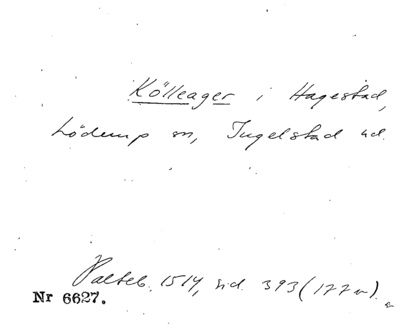 Kölleager i Hagestad,
Löderup sn, Ingelstad hd.
Palteb. 1514, sid. 393 (177 v).
Nr 6627.